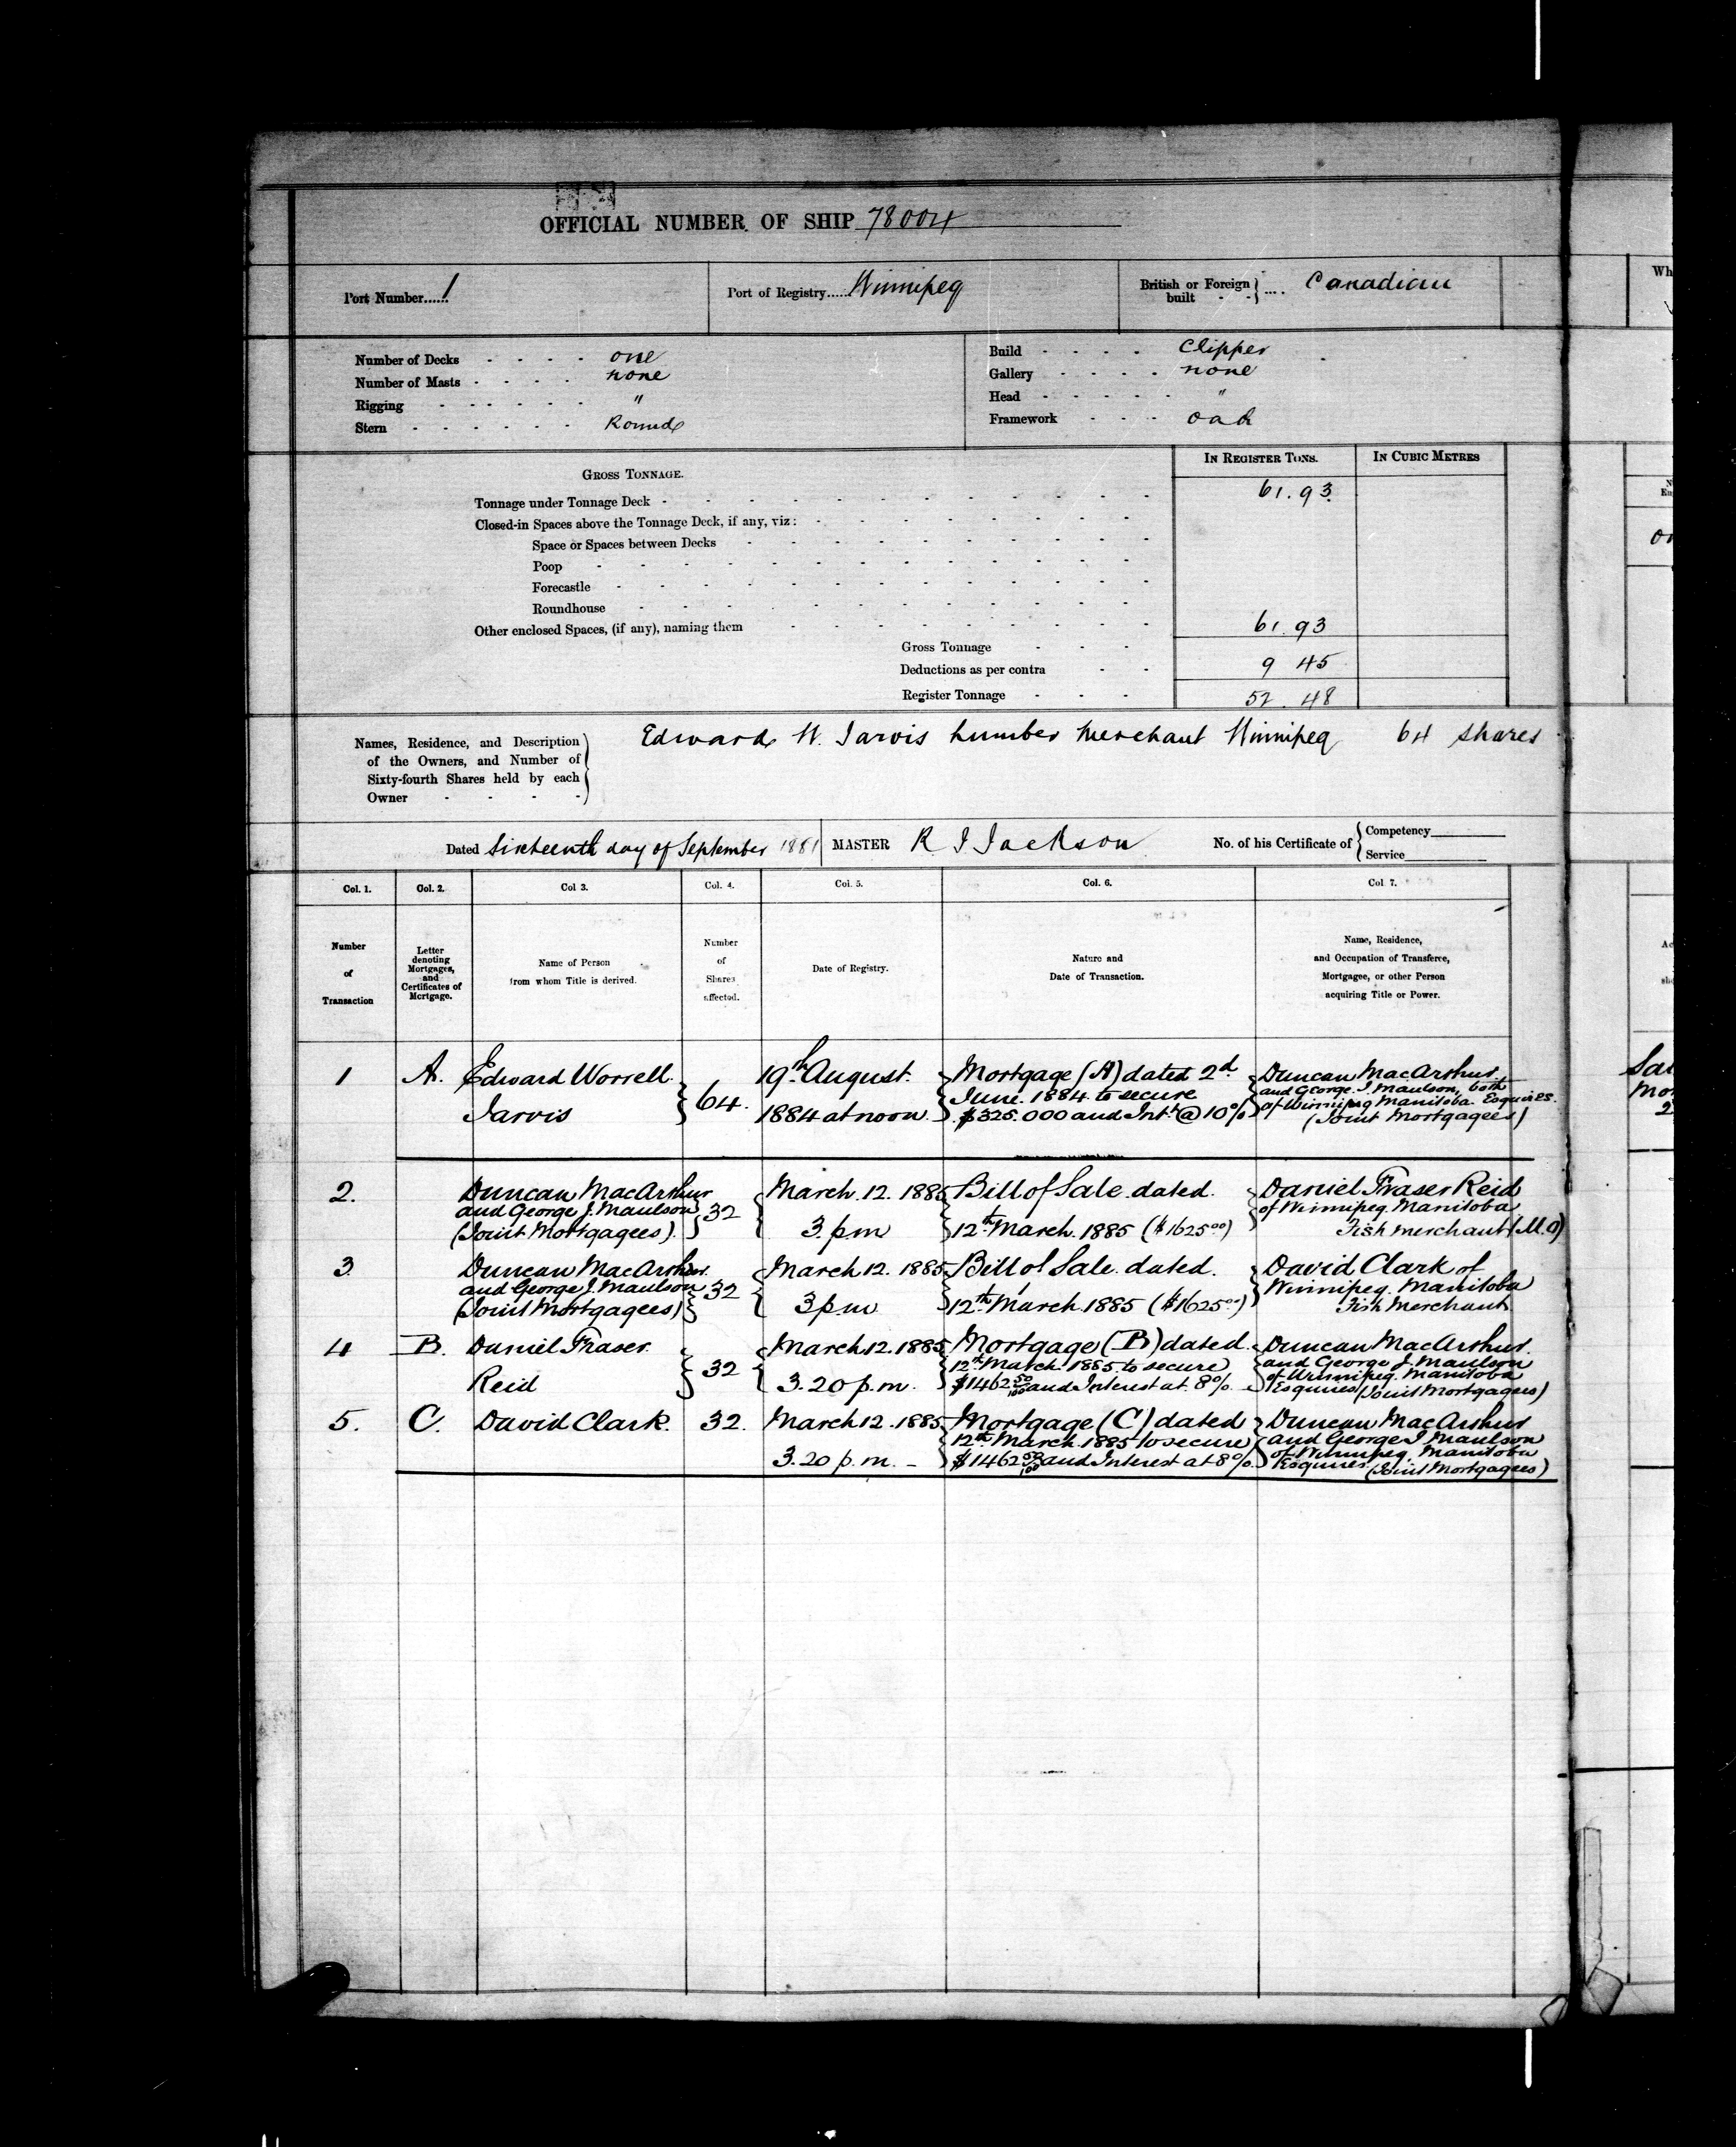 OFFICIAL NUMBER OF SHIP 78004
Port Number...... 1
Port of Registry...... Winnipeg
British or Foreign built - - } .... Canadian
Number of Decks - - - - one
Number of Masts - - - - none
Rigging - - - - - - "
Stern - - - - - - Round
Build - - - - Clipper
Gallery - - - - none
Head - - - - - "
Framework - - - oak
IN REGISTER TONS.
IN CUBIC METRES
GROSS TONNAGE.
Tonnage under Tonnage Deck - 61.93
Closed-in Spaces above the Tonnage Deck, if any, viz:
Space or Spaces between Decks
Poop
Forecastle
Roundhouse
Other enclosed Spaces, (if any), naming them
61.93
Gross Tonnage
Deductions as per contra 9 45
Register Tonnage 52.48
Names, Residence, and Description
of the Owners, and Number of
Sixty-fourth Shares held by each
Owner - - - -
Edward W. Jarvis Lumber Merchant Winnipeg 64 Shares
Dated Sixteenth day of September 1881
MASTER R J Jackson
No. of his Certificate of { Competency
Service
Col. 1.
Col. 2.
Col 3.
Col. 4.
Col. 5.
Col. 6.
Col 7.
Number
of
Transaction
Letter
denoting
Mortgages,
and
Certificates of
Mortgage.
Name of Person
from whom Title is derived.
Number
of
Shares
affected.
Date of Registry.
Nature and
Date of Transaction.
Name, Residence,
and Occupation of Transferee,
Mortgagee, or other Person
acquiring Title or Power.
1
A.
Edward Worrell
Jarvis
64.
19th August.
1884 at noon.
Mortgage (A) dated 2d
June. 1884 to secure
$325.000 and Int. @ 10%
Duncan MacArthur
and George J. Maulson, both
of Winnipeg Manitoba Esquires.
(Joint Mortgagees)
2.
Duncan MacArthur
and George J. Maulson
(Joint Mortgagees).
32
March. 12. 1885
3. pm
Bill of Sale. dated.
12th March. 1885 ($1625.00)
Daniel Fraser Reid
of Winnipeg. Manitoba
Fish Merchant (M.O)
3
Duncan MacArthur.
and George J. Maulson
(Joint Mortgagees)
32
March 12. 1885
3 pm
Bill of Sale. dated.
12th March. 1885 ($1625.00)
David Clark of
Winnipeg. Manitoba
Fish Merchant
4
B.
Daniel Fraser.
Reid
32
March 12. 1885
3. 20 p.m.
Mortgage (B) dated.
12th March. 1885 to secure
$1462 50/100 and Interest at 8%.
Duncan MacArthur.
and George J. Maulson
of Winnipeg. Manitoba
Esquires (Joint Mortgagees)
5.
C.
David Clark.
32.
March 12. 1885
3. 20 p.m. -
Mortgage (C) dated
12th March. 1885 to secure
$1462 50/100 and Interest at 8%.
Duncan MacArthur
and George J. Maulson
of Winnipeg. Manitoba
Esquires. (Joint Mortgagees)